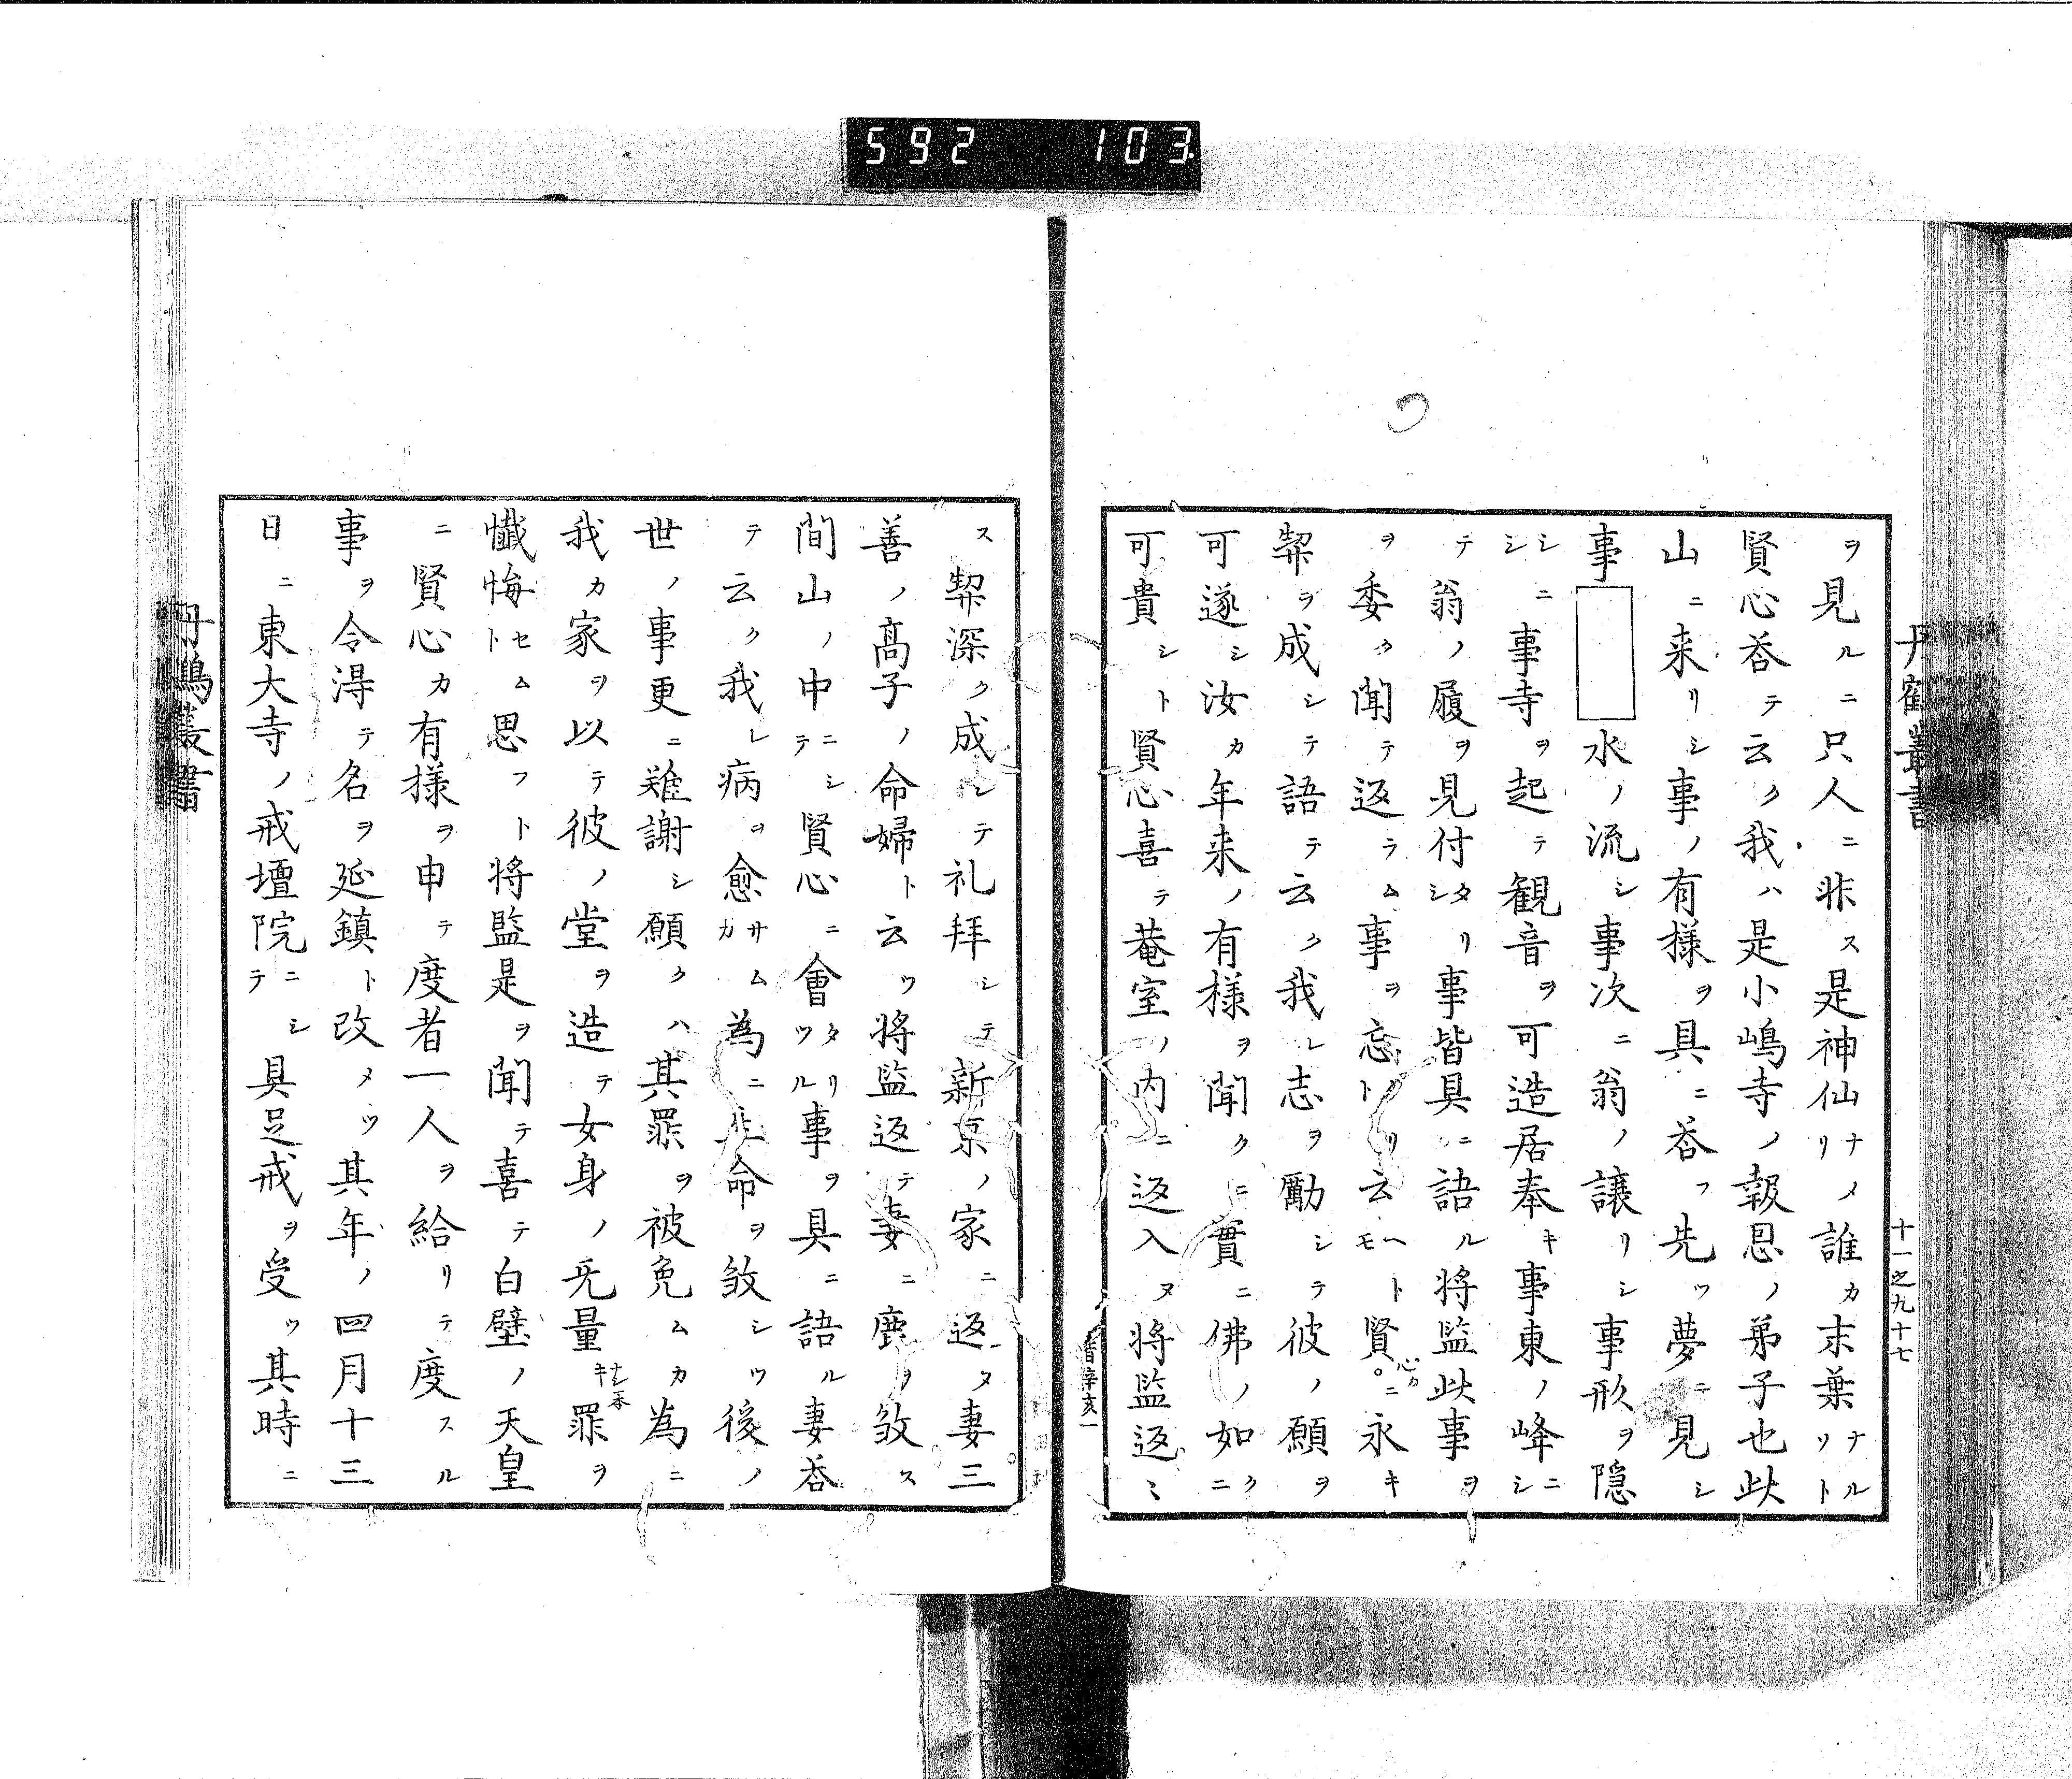 592 103
丹鶴叢書
十一之九十七
ヲ見ルニ只人ニ非ス是神仙ナメリ誰カ末葉ナルリト
賢心答テ云ク我ハ是小嶋寺ノ報恩ノ弟子也此
山ニ来リシ事ノ有様ヲ具ニ答フ先ツ夢ニ見シ
事水ノ流シ事次ニ翁ノ譲リシ事形ヲ隠
シシニ事寺ヲ起テ観音ヲ可造居奉キ事東ノ峰ニシ
テ翁ノ履ヲ見付タリシ事皆具ニ語ル将監此事ヲ
ヲ委ク聞テ返ラム事ヲ忘リト云ヘトモ賢心カニ永キ
契ヲ成シテ語テ云ク我レ志ヲ勵シテ彼ノ願ヲ
可遂シ汝カ年来ノ有様ヲ聞クニ實ニ佛ノ如クニ
可貴シト賢心喜テ菴室ノ内ニ返入ヌ将監返ミ
ス契深ク成シテ礼拜シテ新京ノ家ニ返ヌ妻三
善ノ髙子ノ命婦ト云ツ将監返テ妻ニ鹿ヲ敓ス
間山ノ中ニシテ賢心ニ會タリツル事ヲ具ニ語ル妻答
テ云ク我レ病ヲ愈サムカ為ニ生命ヲ敓シツ後ノ
世ノ事更ニ難謝シ願クハ其罪ヲ被免ムカ為ニ
我カ家ヲ以テ彼ノ堂ヲ造テ女身ノ无量ナシキ本罪ヲ
懺悔セムト思フト将監是ヲ聞テ喜テ白壁ノ天皇
ニ賢心カ有様ヲ申テ度者一人ヲ給リテ度スル
事ヲ令得テ名ヲ延鎮ト改メツ其年ノ四月十三
日ニ東大寺ノ戒壇院ニシテ具足戒ヲ受ツ其時ニ